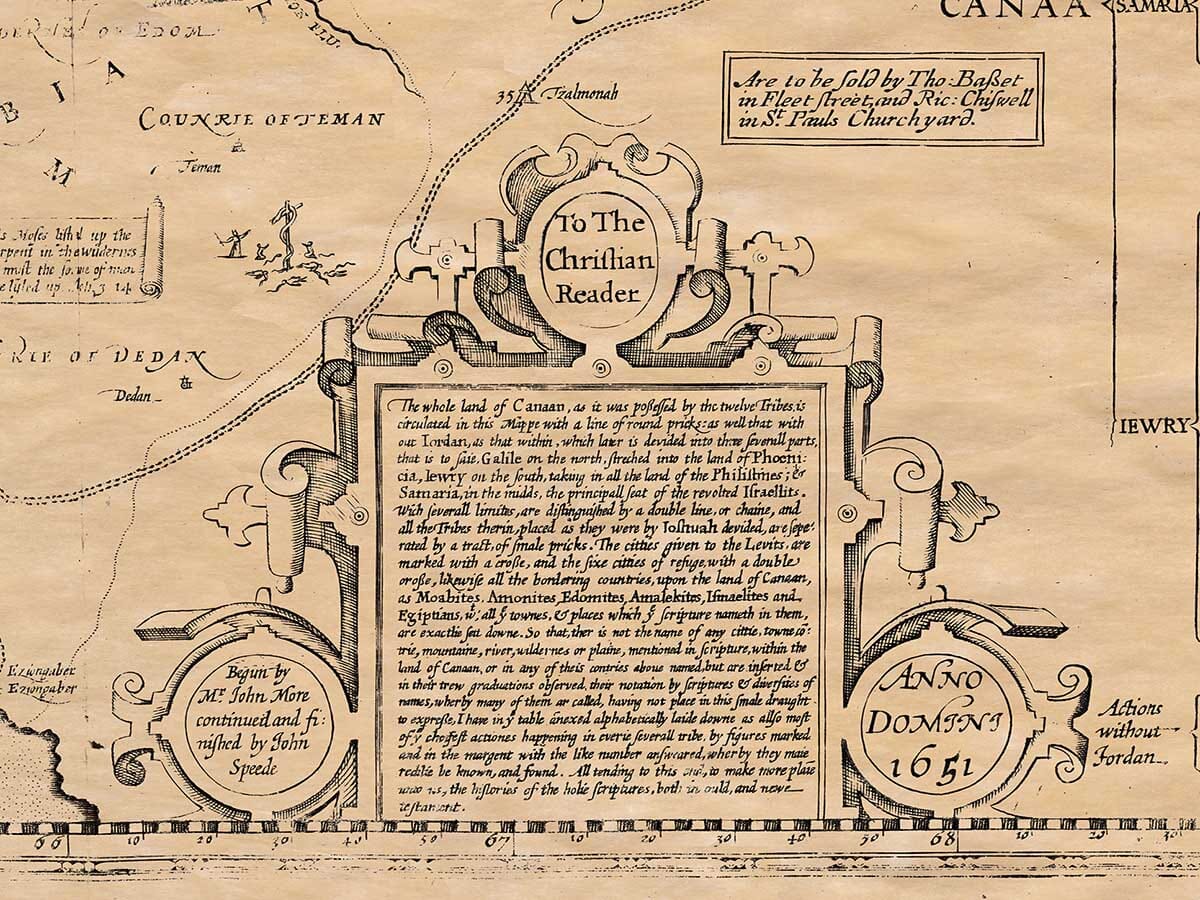 CANAA
SAMARIA
OF EDOM
FLU.
BIA
COUNRIE OF TEMAN
Teman
35 Tzalmonah
Are to be sold by Tho: Baßet
in Fleet street, and Ric: Chiswell
in St. Pauls Churchyard.
s Moses lift'd up the
rpent in the wildernes
must the so.ne of man
To The
Christian
Reader
RIE OF DEDAN
Dedan
The whole land of Canaan, as it was poßessed by the twelve Tribes, is
circulated in this Mappe with a line of round pricks: as well that with
out Iordan, as that within, which later is devided into three severall parts,
that is to saie, Galile on the north, streched into the land of Phoeni:
cia, Iewry on the south, taking in all the land of the Philistines; &
Samaria, in the midds, the principall seat of the revolted Israelits.
Wich severall limites, are distinguished by a double line, or chaine, and
all the Tribes therin, placed as they were by Ioshuah devided, are sepe:
rated by a tract, of smale pricks. The citties given to the Levits, are
marked with a croße, and the sixe citties of refuge, with a double
croße, likewise all the bordering countries, upon the land of Canaan,
as Moabites, Amonites, Edomites, Amalekites, Ismaelites and
Egiptians, wt. all ye townes, & places which ye scripture nameth in them,
are exactlie sett downe. So that, ther is not the name of any cittie, towne, cō:
trie, mountaine, river, wildernes or plaine, mentioned in scripture, within the
land of Canaan, or in any of theis contries aboue named, but are inserted &
in their trew graduations observed, their notation by scriptures & diversities of
names, wherby many of them ar called, having not place in this smale draught
to expreße, I have in ye table anexed alphabetically laide downe as allso most
of ye choifest actiones happening in everie severall tribe, by figures marked
and in the margent with the like number answared, wherby they maie
redilie be known, and found. All tending to this to make more plaie
the histories of the holie scriptures, both in ould, and newe
testament.
IEWRY
Eziongaber
Eziongaber
Begun by
Mr. John More
continued and fi:
nished by John
Speede
ANNO
DOMINI
1651
Actions
without
Jordan
66 10 20 30 40 50 67 10 20 30 40 50 68 10 20 30